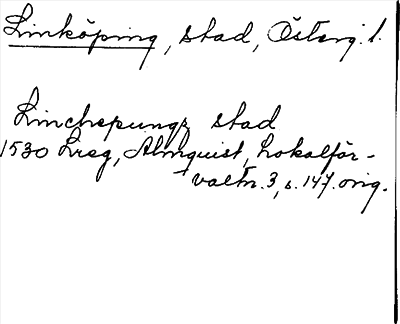 Linköping, stad, Österg. l.
Linchepungz stad
1530 Lreg, Almquist, Lokalför-
valtn. 3, s. 147. orig.